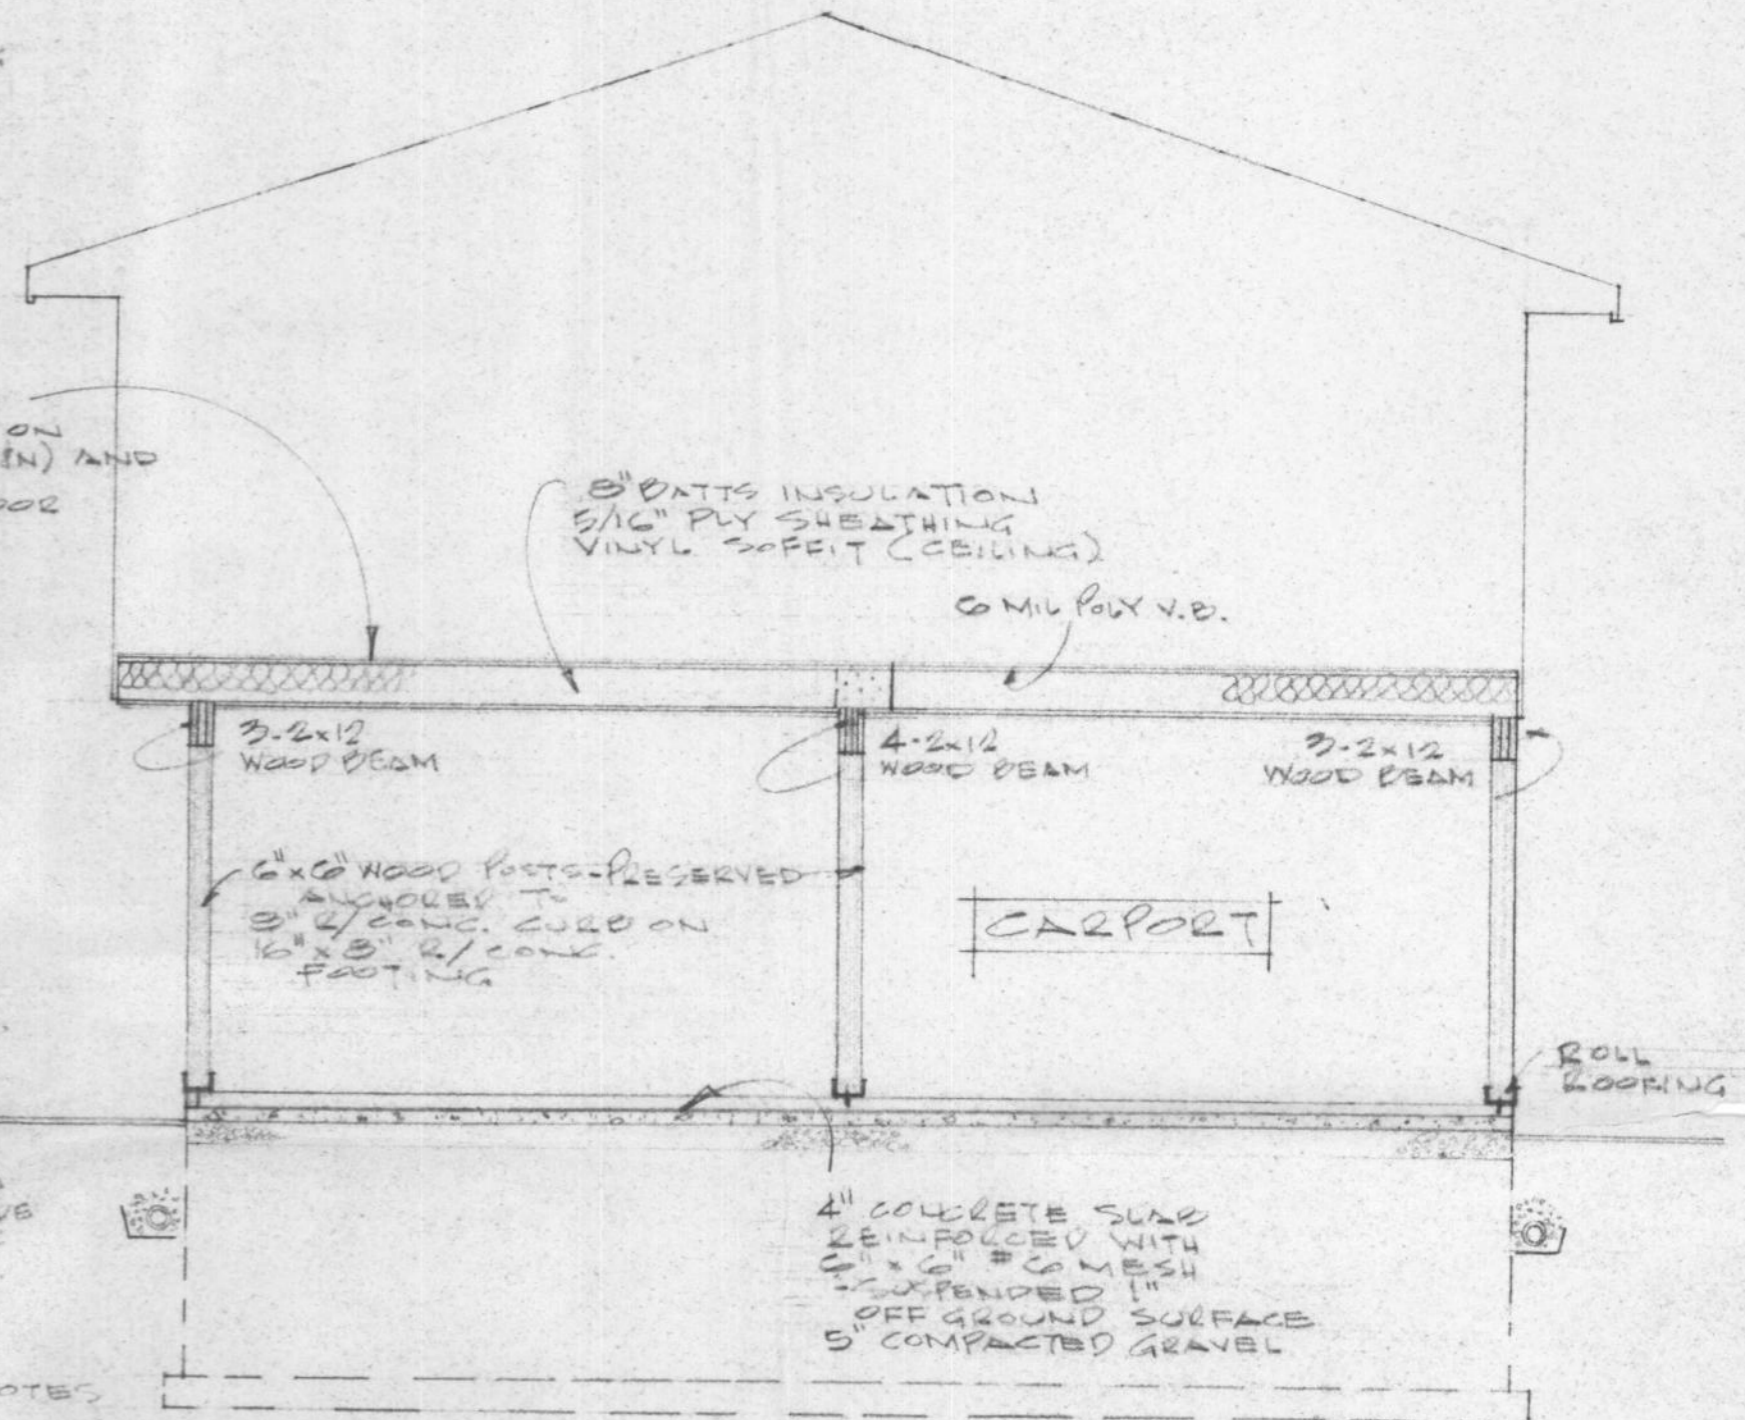 ON
IN) AND
OOR
8" BATTS INSULATION
5/16" PLY SHEATHING
VINYL SOFFIT (CEILING)
6 MIL POLY V.B.
3-2x12
WOOD BEAM
4-2x12
WOOD BEAM
3-2x12
WOOD BEAM
6"x6" WOOD POSTS-PRESERVED
ANCHORED TO
8" R/CONC. CURB ON
16" x 8" R/CONC.
FOOTING
CARPORT
ROLL
ROOFING
4" CONCRETE SLAB
REINFORCED WITH
6" x 6" #6 MESH
- SUSPENDED 1"
OFF GROUND SURFACE
5" COMPACTED GRAVEL
OTES